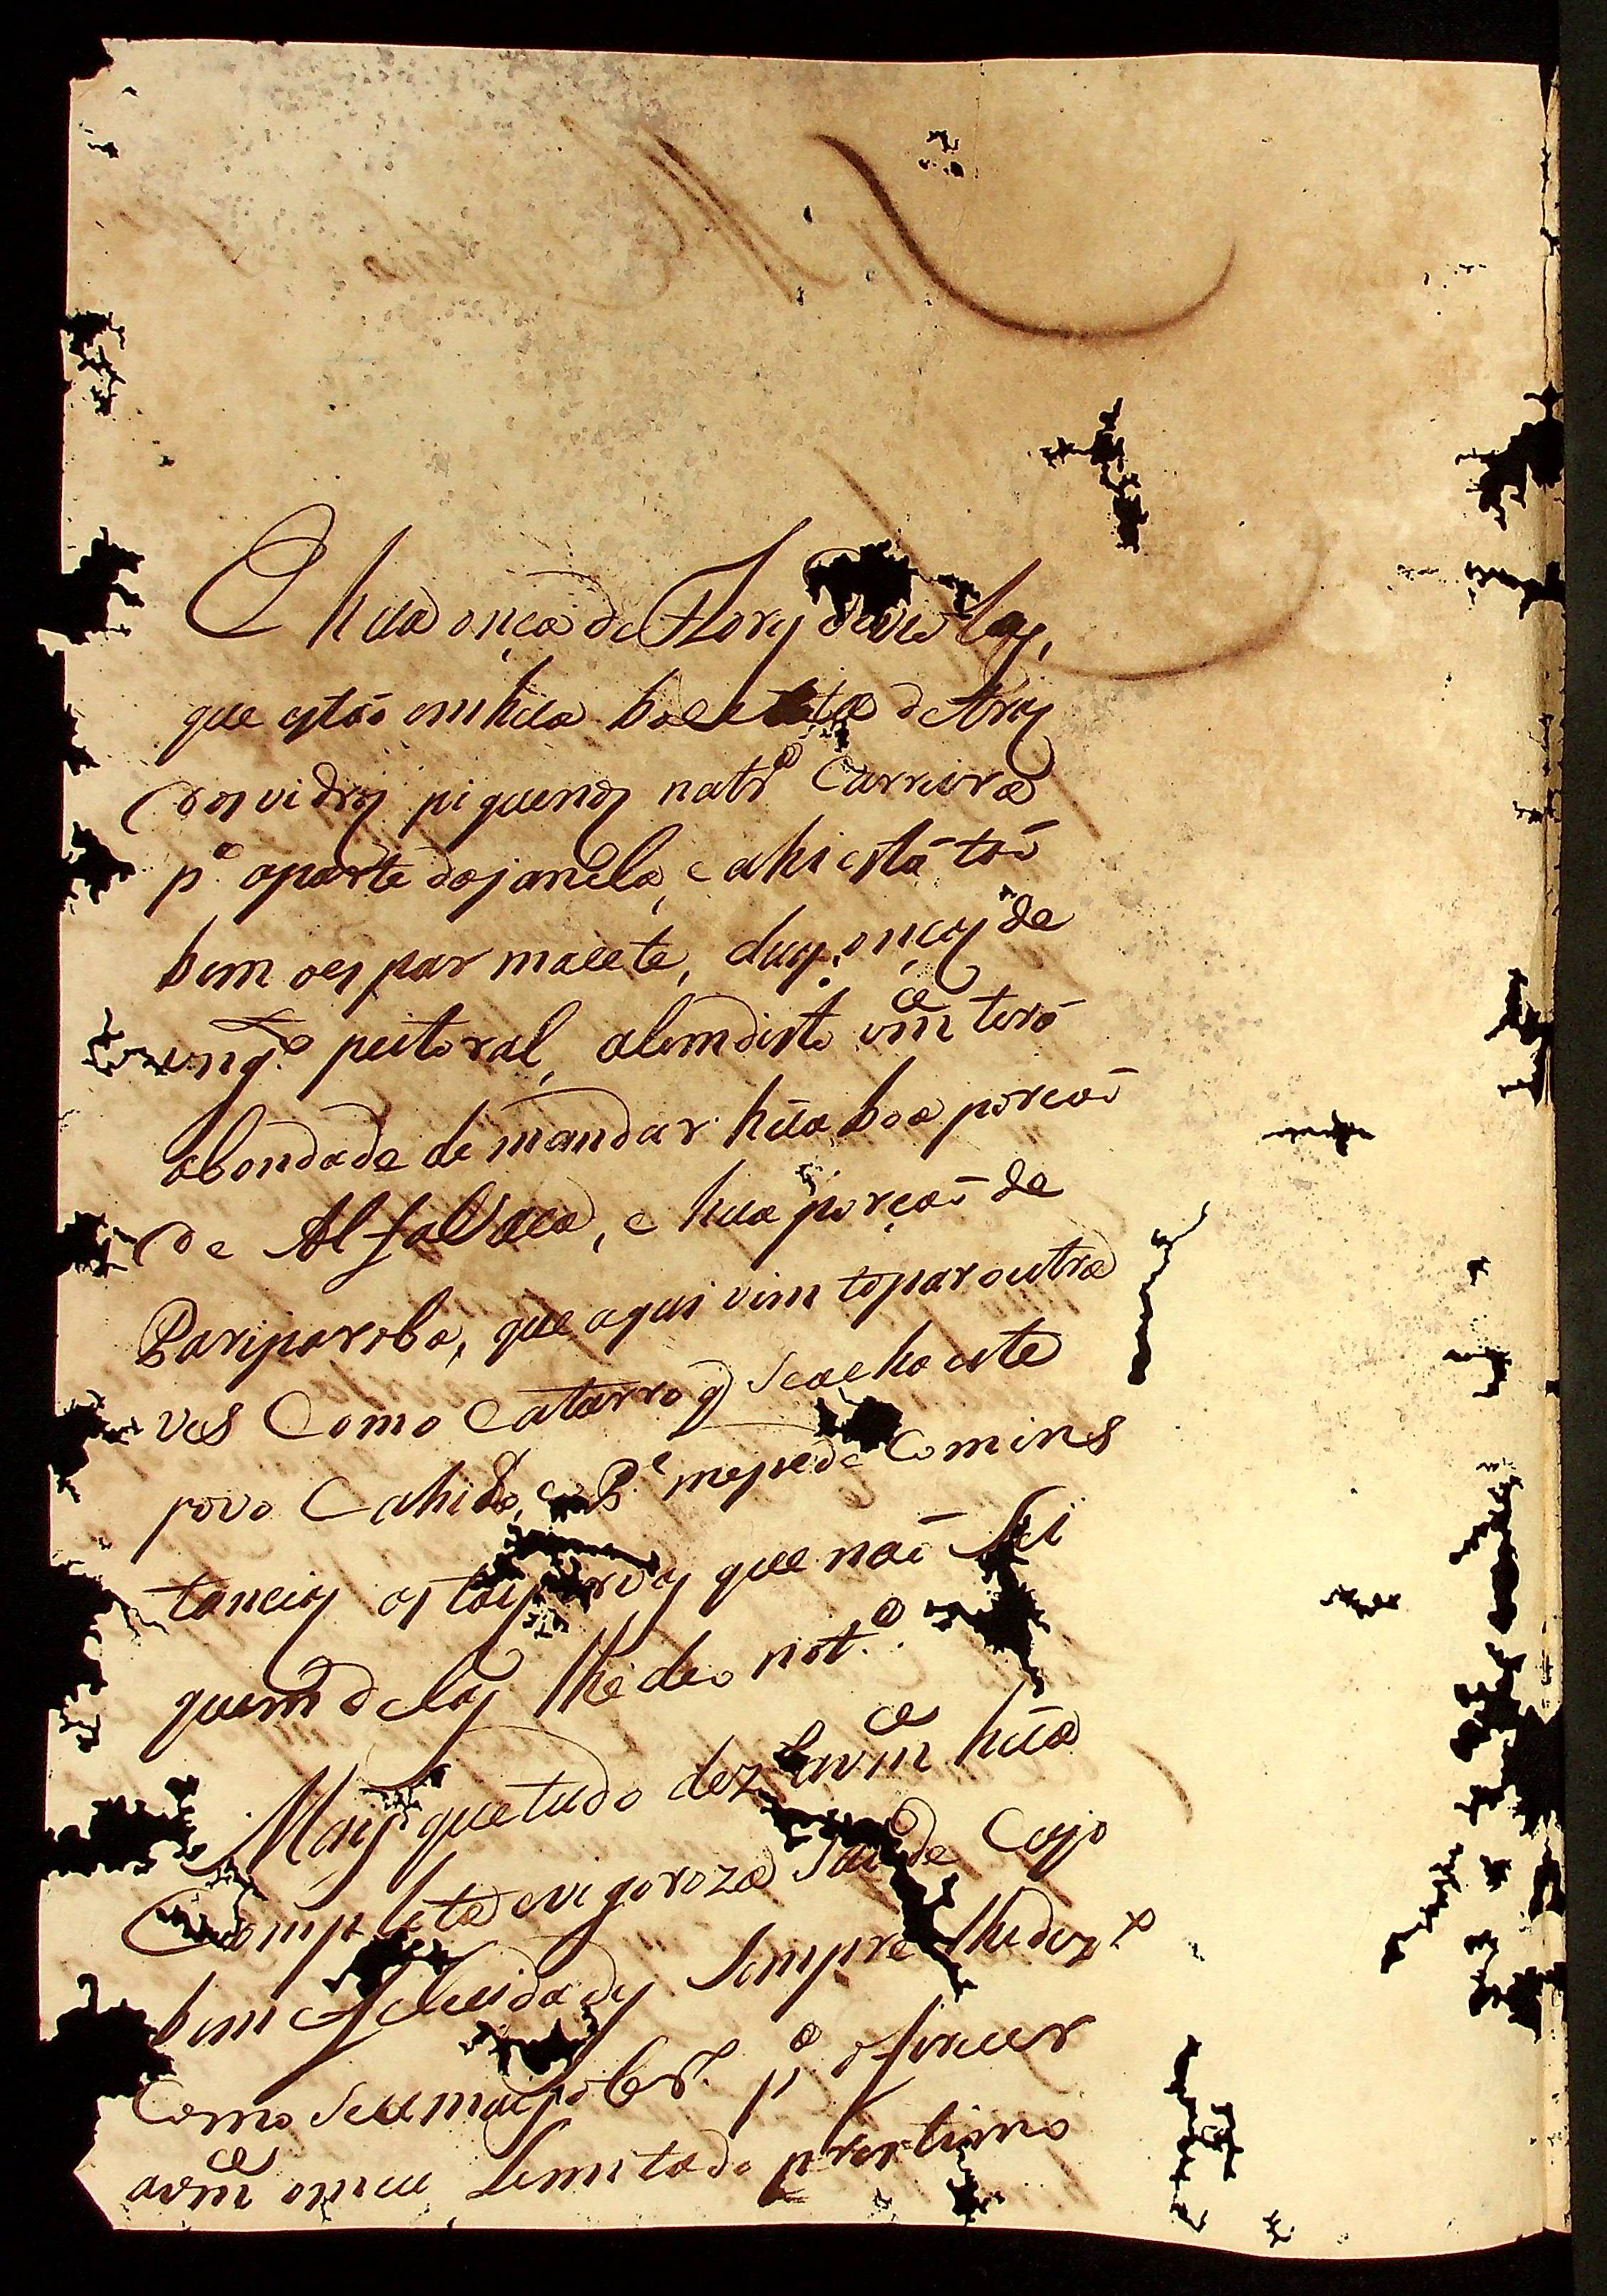 E hũa onça de Flores de violas,
que estão em hũa bocetta detras
dos vidros piquenos na tr.ª Carreira
p.ª aparte da janella, e ahi está taõ
bem o espar macete, duas onças de
ung.º peitoral, alem disto vm.ce terá
abondade de mandar hũa boa porcaõ
de Alfavaca, e hũa porçaõ de
Pariparoba, que aqui vim topar outra
ves Como Catarro q̃ Seacha este
povo Cahido, e P.e mepede Com ins
tancia as que naõ Sei
quem delas lhe deo not.ª
Mais que tudo dez.º avm.ce hũa
Completa evigoroza Saude Cujo
bem efelicidades Sempre lhedez.º
Como Seumais obr.º p.ª ofrecer
avm.ce omeu Lemitado prestimo